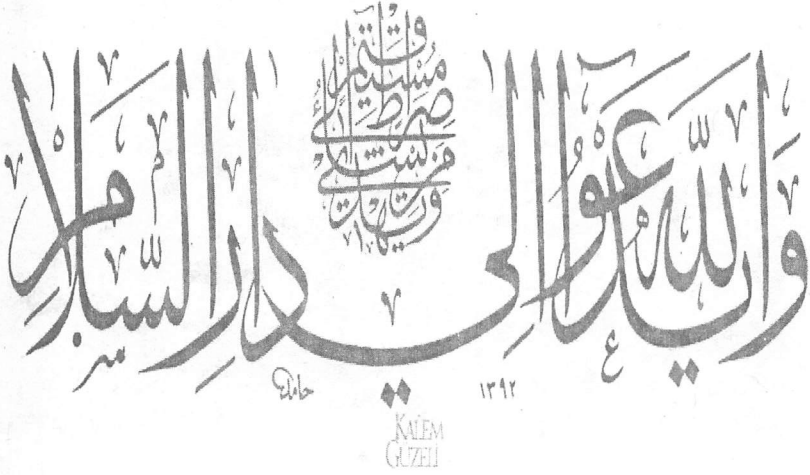 والله يدعوا الى دار السلام
ويهدي من يشاء الى صراط مستقيم
حامد
١٣٩٢
KALEM
GUZELİ